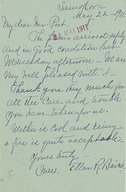 May 22 - 191
My dear Mr. Post.
The arrived safely
and in good condition last
Wednesday afternoon. We are
very well pleased with it.
Thank you very much for
all the care and trouble
you have taken for us.
Weather is cool and
a fire is quite acceptable.
Yours truly -
Ellen R.